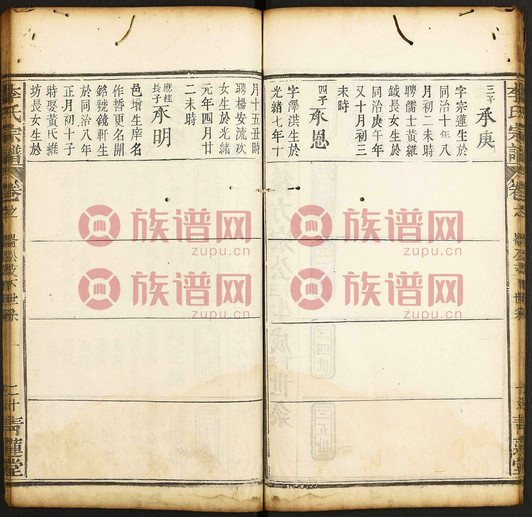 三子 承庚
字宗蓮生於
同治十年八
月初二未時
聘儒士黃維
鉞長女生於
同治庚午年
又十月初三
未時
四子 承恩
字澤洪生於
光緒七年十
月十五丑時
聘楊安流次
女生於光緒
元年四月廿
二未時
應柱長子 承明
邑增生庠名
作哲更名開
銘號鏡軒生
於同治八年
正月初十子
時娶黃氏維
坊長女生於
李氏宗譜
卷之
青蓮堂
李氏宗譜
卷之
青蓮堂
族谱网
zupu.cn
族谱网
zupu.cn
族谱网
zupu.cn
族谱网
zupu.cn